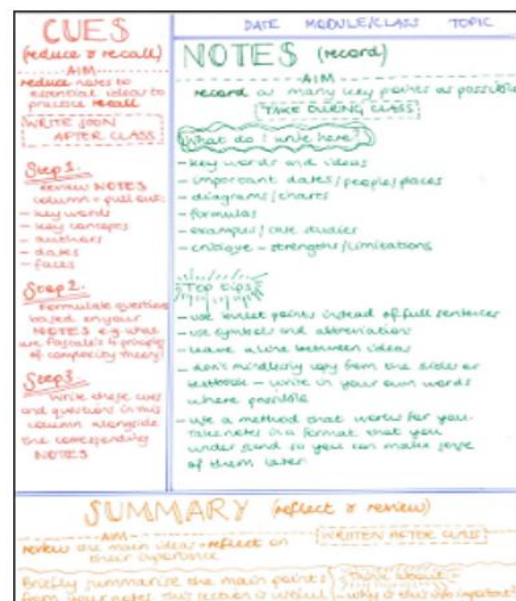 CUES
(reduce & recall)
AIM
reduce notes to
essential ideas to
practise recall
WRITE SOON
AFTER CLASS
Step 1.
Review NOTES
column & pull out:
- key words
- key concepts
- authors
- dates
- faces
Step 2.
Formulate questions
based on your
NOTES e.g. what
are Pascale's 4 principles
of complexity theory?
Step 3
Write these cues
and questions in this
column alongside
the corresponding
NOTES
DATE MODULE/CLASS TOPIC
NOTES (record)
AIM
record as many key points as possible
TAKE DURING CLASS
What do I write here?
- key words and ideas
- important dates/people/places
- diagrams/charts
- formulas
- examples/case studies
- critique - strengths/limitations
Top tips
- use bullet points instead of full sentences
- use symbols and abbreviations
- leave a line between ideas
- don't mindlessly copy from the slides or
textbook - write in your own words
where possible
- use a method that works for you -
take notes in a format that you
understand so you can make sense
of them later
SUMMARY (reflect & review)
AIM
review the main ideas & reflect on
their importance
WRITTEN AFTER CLASS
Briefly summarise the main points
from your notes. This section is useful
Think about -
- why is this info important?